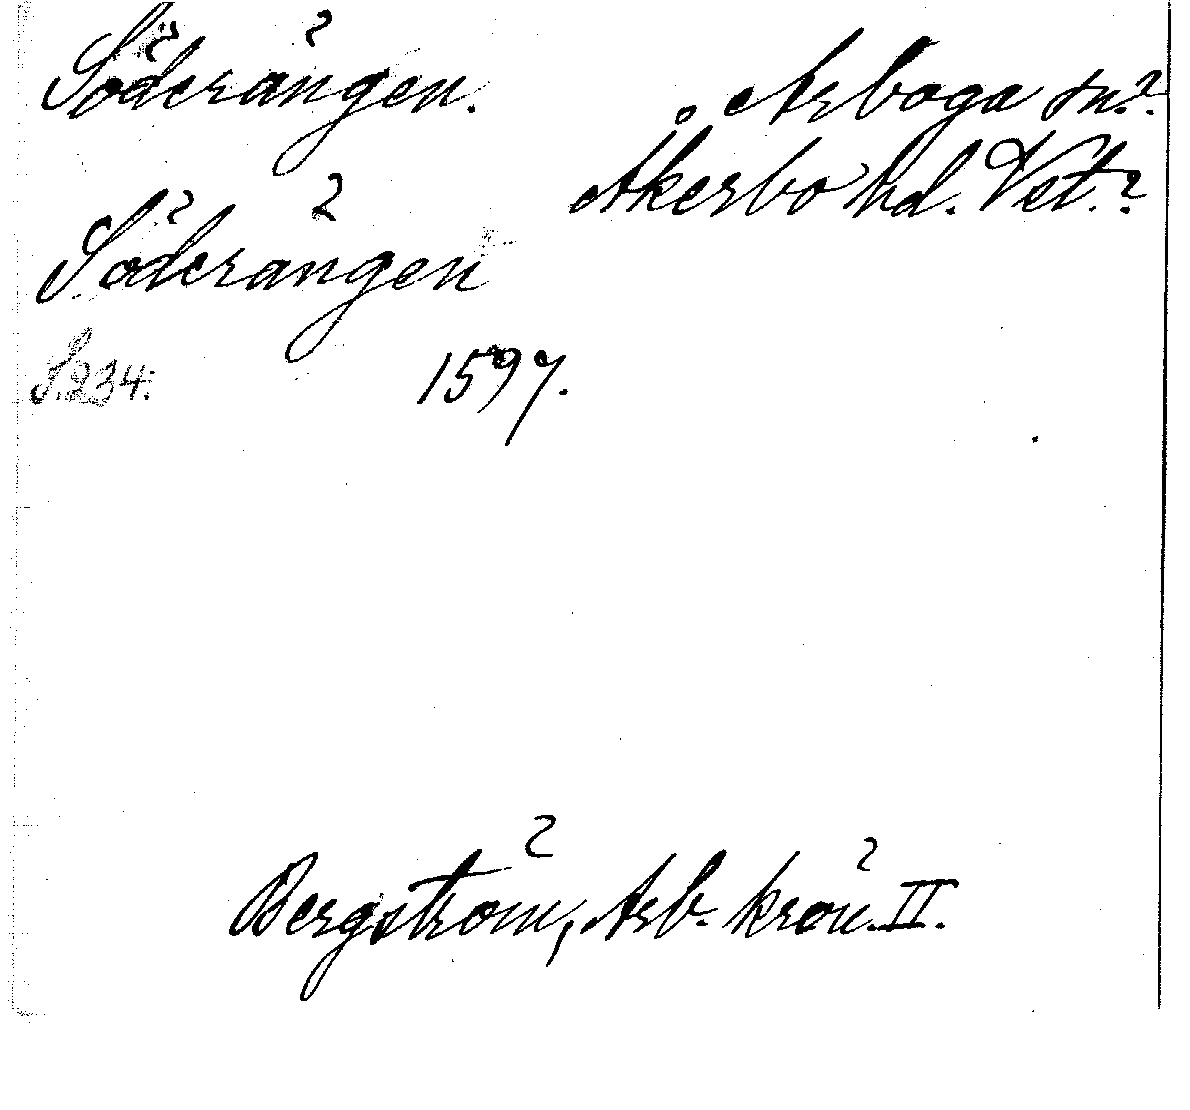 Söderängen.
Arboga sn.?
Åkerbo hd. Vst.?
Söderängen
S. 234:
1597.
Bergström, Arb. krön. II.